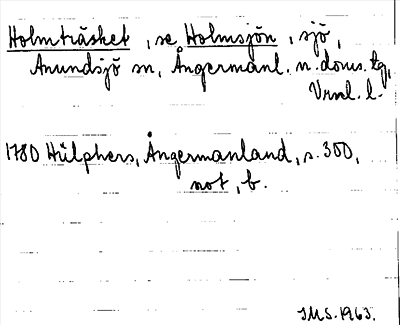 Holmträsket, se Holmsjön, sjö,
Anundsjö sn, Ångermanl. n. doms. tg,
Vrnl. l.
1780 Hülphers, Ångermanland, s. 300,
not, b.
IMS. 1963.